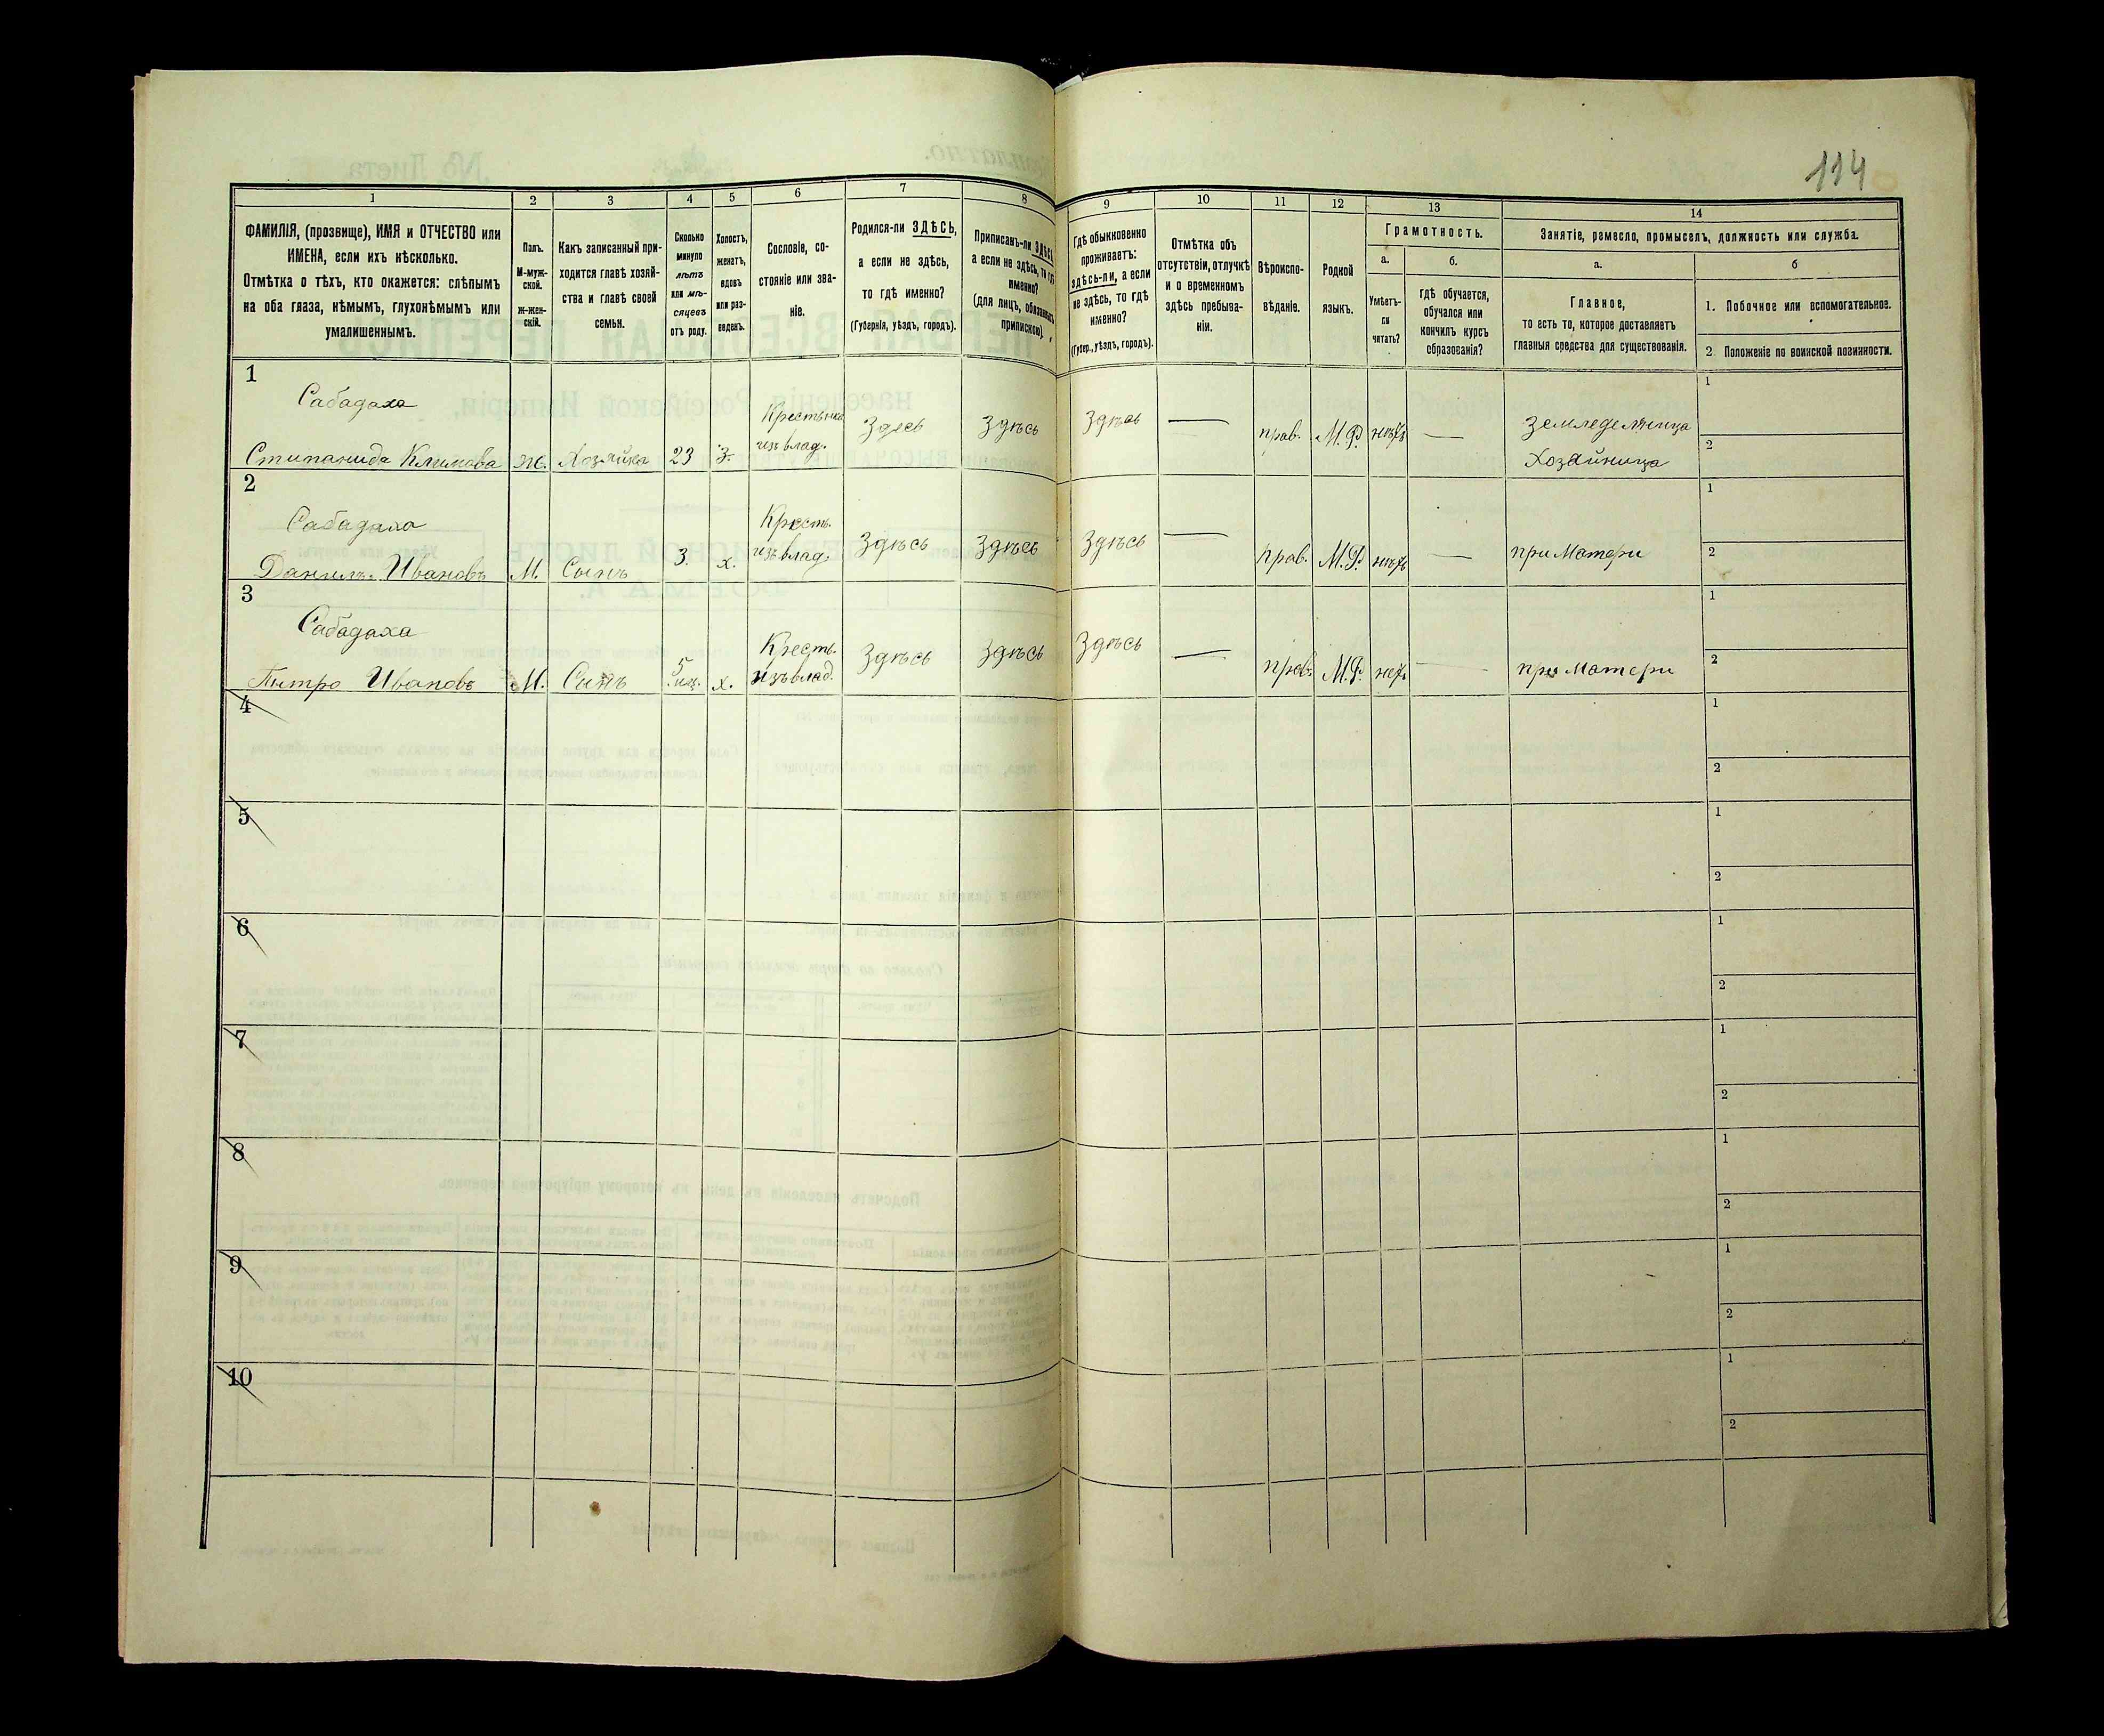 114
1
2
3
4
5
6
7
8
9
10
11
12
13
14
ФАМИЛІЯ, (прозвище), ИМЯ и ОТЧЕСТВО или
ИМЕНА, если ихъ нѣсколько.
Отмѣтка о тѣхъ, кто окажется: слѣпымъ
на оба глаза, нѣмымъ, глухонѣмымъ или
умалишеннымъ.
Полъ.
М-муж-
ской.
Ж-жен-
скій.
Какъ записанный при-
ходится главѣ хозяй-
ства и главѣ своей
семьи.
Сколько
минуло
лѣтъ
или мѣ-
сяцевъ
отъ роду.
Холостъ,
женатъ,
вдовъ
или раз-
веденъ.
Сословіе, со-
стояніе или зва-
ніе.
Родился-ли ЗДѢСЬ,
а если не здѣсь,
то гдѣ именно?
(Губернія, уѣздъ, городъ).
Приписанъ-ли ЗДѢСЬ
а если не здѣсь, то гдѣ
именно?
(для лицъ, обязанныхъ
припискою).
Гдѣ обыкновенно
проживаетъ:
здѣсь-ли, а если
не здѣсь, то гдѣ
именно?
(Губер., уѣздъ, городъ).
Отмѣтка объ
отсутствіи, отлучкѣ
и о временномъ
здѣсь пребыва-
ніи.
Вѣроиспо-
вѣданіе.
Родной
языкъ.
Грамотность.
а.
б.
Умѣетъ-
ли
читать?
гдѣ обучается,
обучался или
кончилъ курсъ
образованія?
Занятіе, ремесло, промыселъ, должность или служба.
а.
б
Главное,
то есть то, которое доставляетъ
главныя средства для существованія.
1. Побочное или вспомогательное.
2 Положеніе по воинской повинности.
1
Сабадаха
Стипанида Климова ж. Хозяйка 23 З. Крестьянка изъ влад. Здесь Здѣсь Здѣсь — прав. М.Р. нѣтъ — Земледелница
Хозяйница
1
2
2
Сабадаха
Данилъ Ивановъ М. Сынъ 3. х. Кресть. изъ влад. Здѣсь Здѣсь Здѣсь — прав. М.Р. нѣтъ — при Матери
1
2
3
Сабадаха
Петро Ивановъ М. Сынъ 5 х. Кресть. изъ влад. Здѣсь Здѣсь Здѣсь — прав. М.Р. нетъ — при Матери
1
2
4
1
2
5
1
2
6
1
2
7
1
2
8
1
2
9
1
2
10
1
2